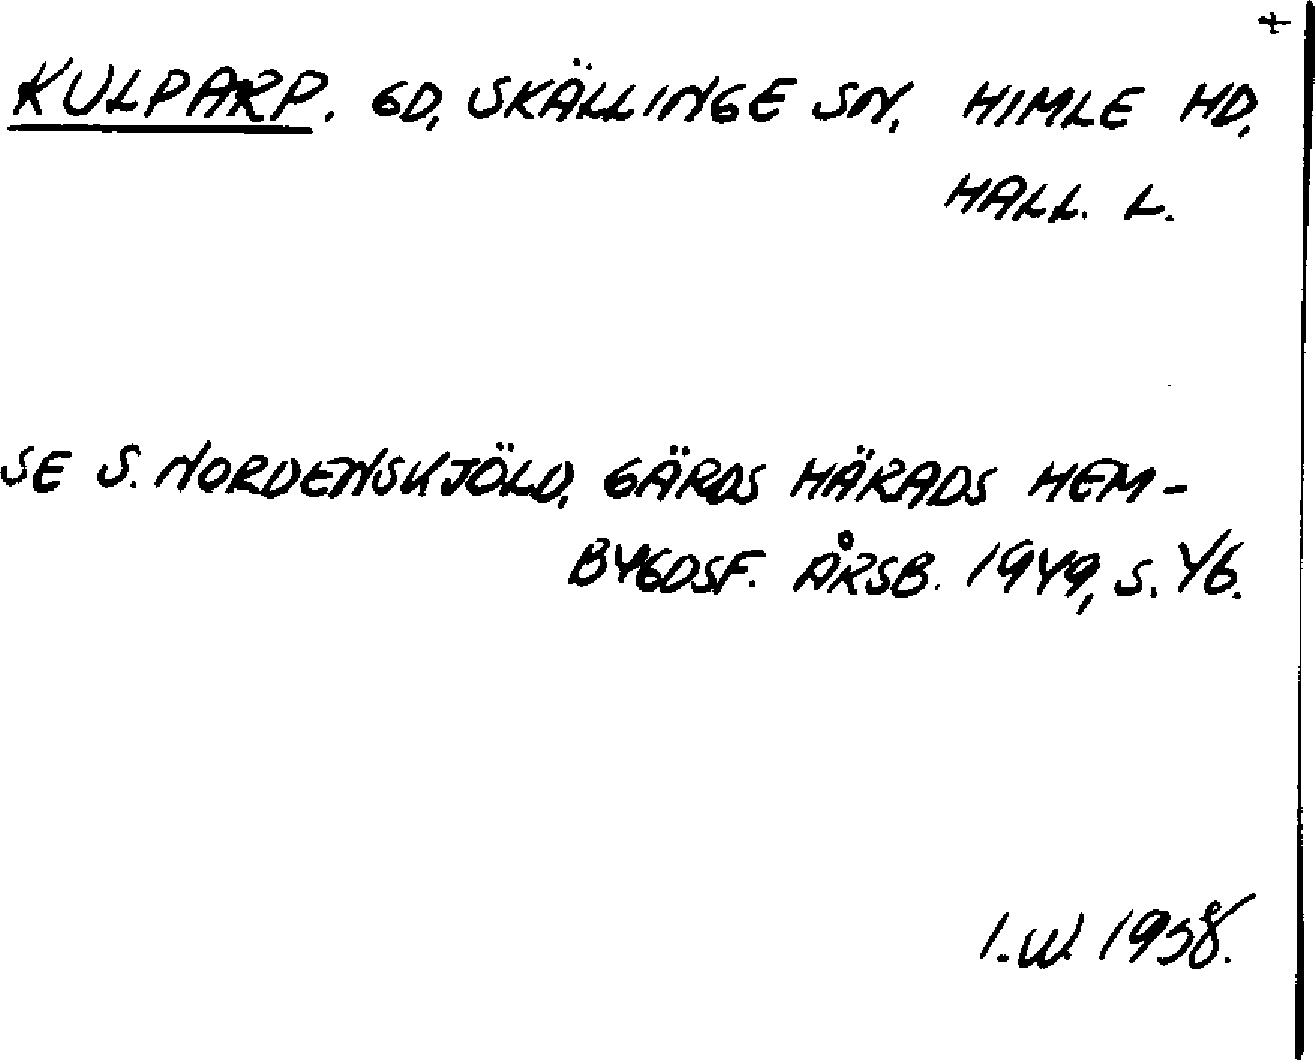 +
KULPARP. GD, SKÄLLINGE SN, HIMLE HD,
HALL. L.
SE S. NORDENSKJÖLD, GÄRDS HÄRADS HEM-
BYGDSF. ÅRSB. 1949, S. 46.
I.W. 1958.